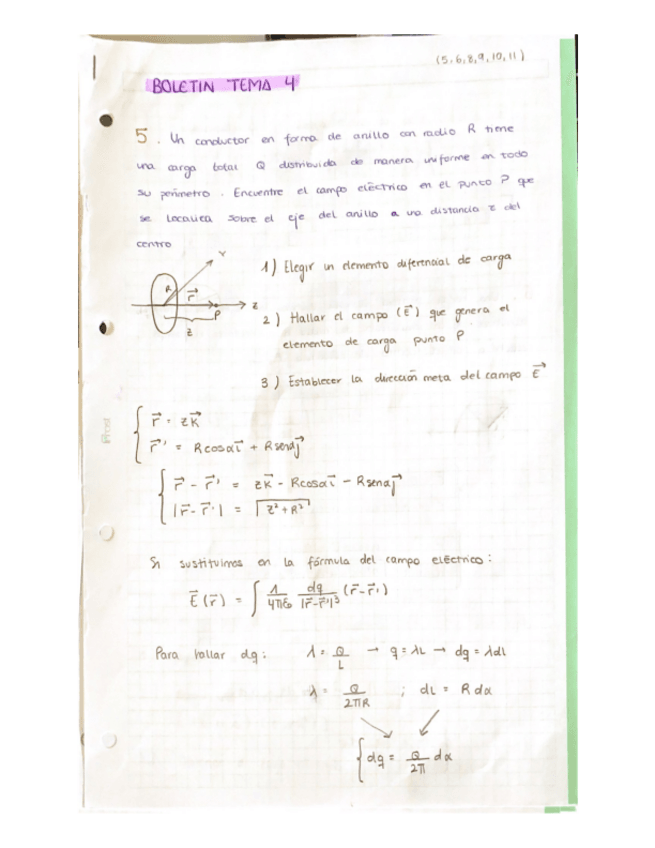 (5,6,8,9,10,11)
BOLETIN TEMA 4
5. Un conductor en forma de anillo con radio R tiene
una carga total Q distribuida de manera uniforme en todo
su perímetro. Encuentre el campo eléctrico en el punto P que
se localica sobre el eje del anillo a una distancia z del
centro
Y
R
r⃗
P
Z
z
1) Elegir un elemento diferencial de carga
2) Hallar el campo (E⃗) que genera el
elemento de carga punto P
3) Establecer la dirección meta del campo E⃗
r⃗ = zk⃗
r⃗' = Rcosαi⃗ + Rsenαj⃗
r⃗ - r⃗' = zk⃗ - Rcosαi⃗ - Rsenαj⃗
|r⃗ - r⃗'| = √(z² + R²)
Si sustituimos en la fórmula del campo eléctrico:
E⃗(r⃗) = ∫ 1/4πε₀ dq/|r⃗-r⃗'|³ (r⃗-r⃗')
Para hallar dq: λ = Q/L → q = λL → dq = λdl
λ = Q/2πR ; dL = R dα
dq = Q/2π dα